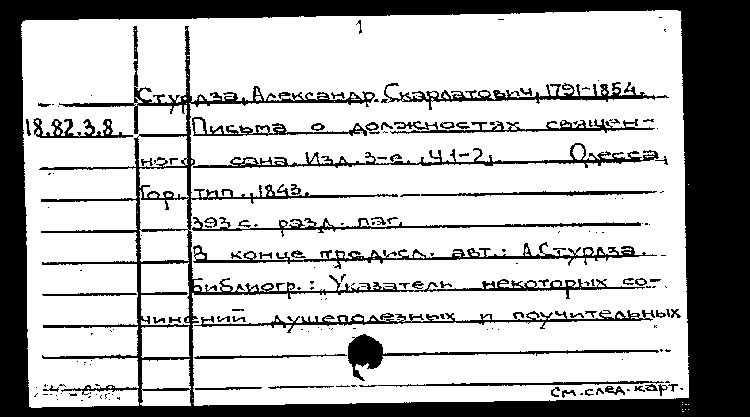 1
Стурдза, Александр Скарлатович, 1791-1854.
18.82.3.8. Письма о должностях священ-
ного сана. Изд. 3-е. [Ч.1-2]. Одесса,
Гор. тип., 1843.
393 с. разд. паг.
В конце предисл. авт.: А.Стурдза.
Библиогр.: Указатель некоторых со-
чинений душеполезных и поучительных
см. след. карт.